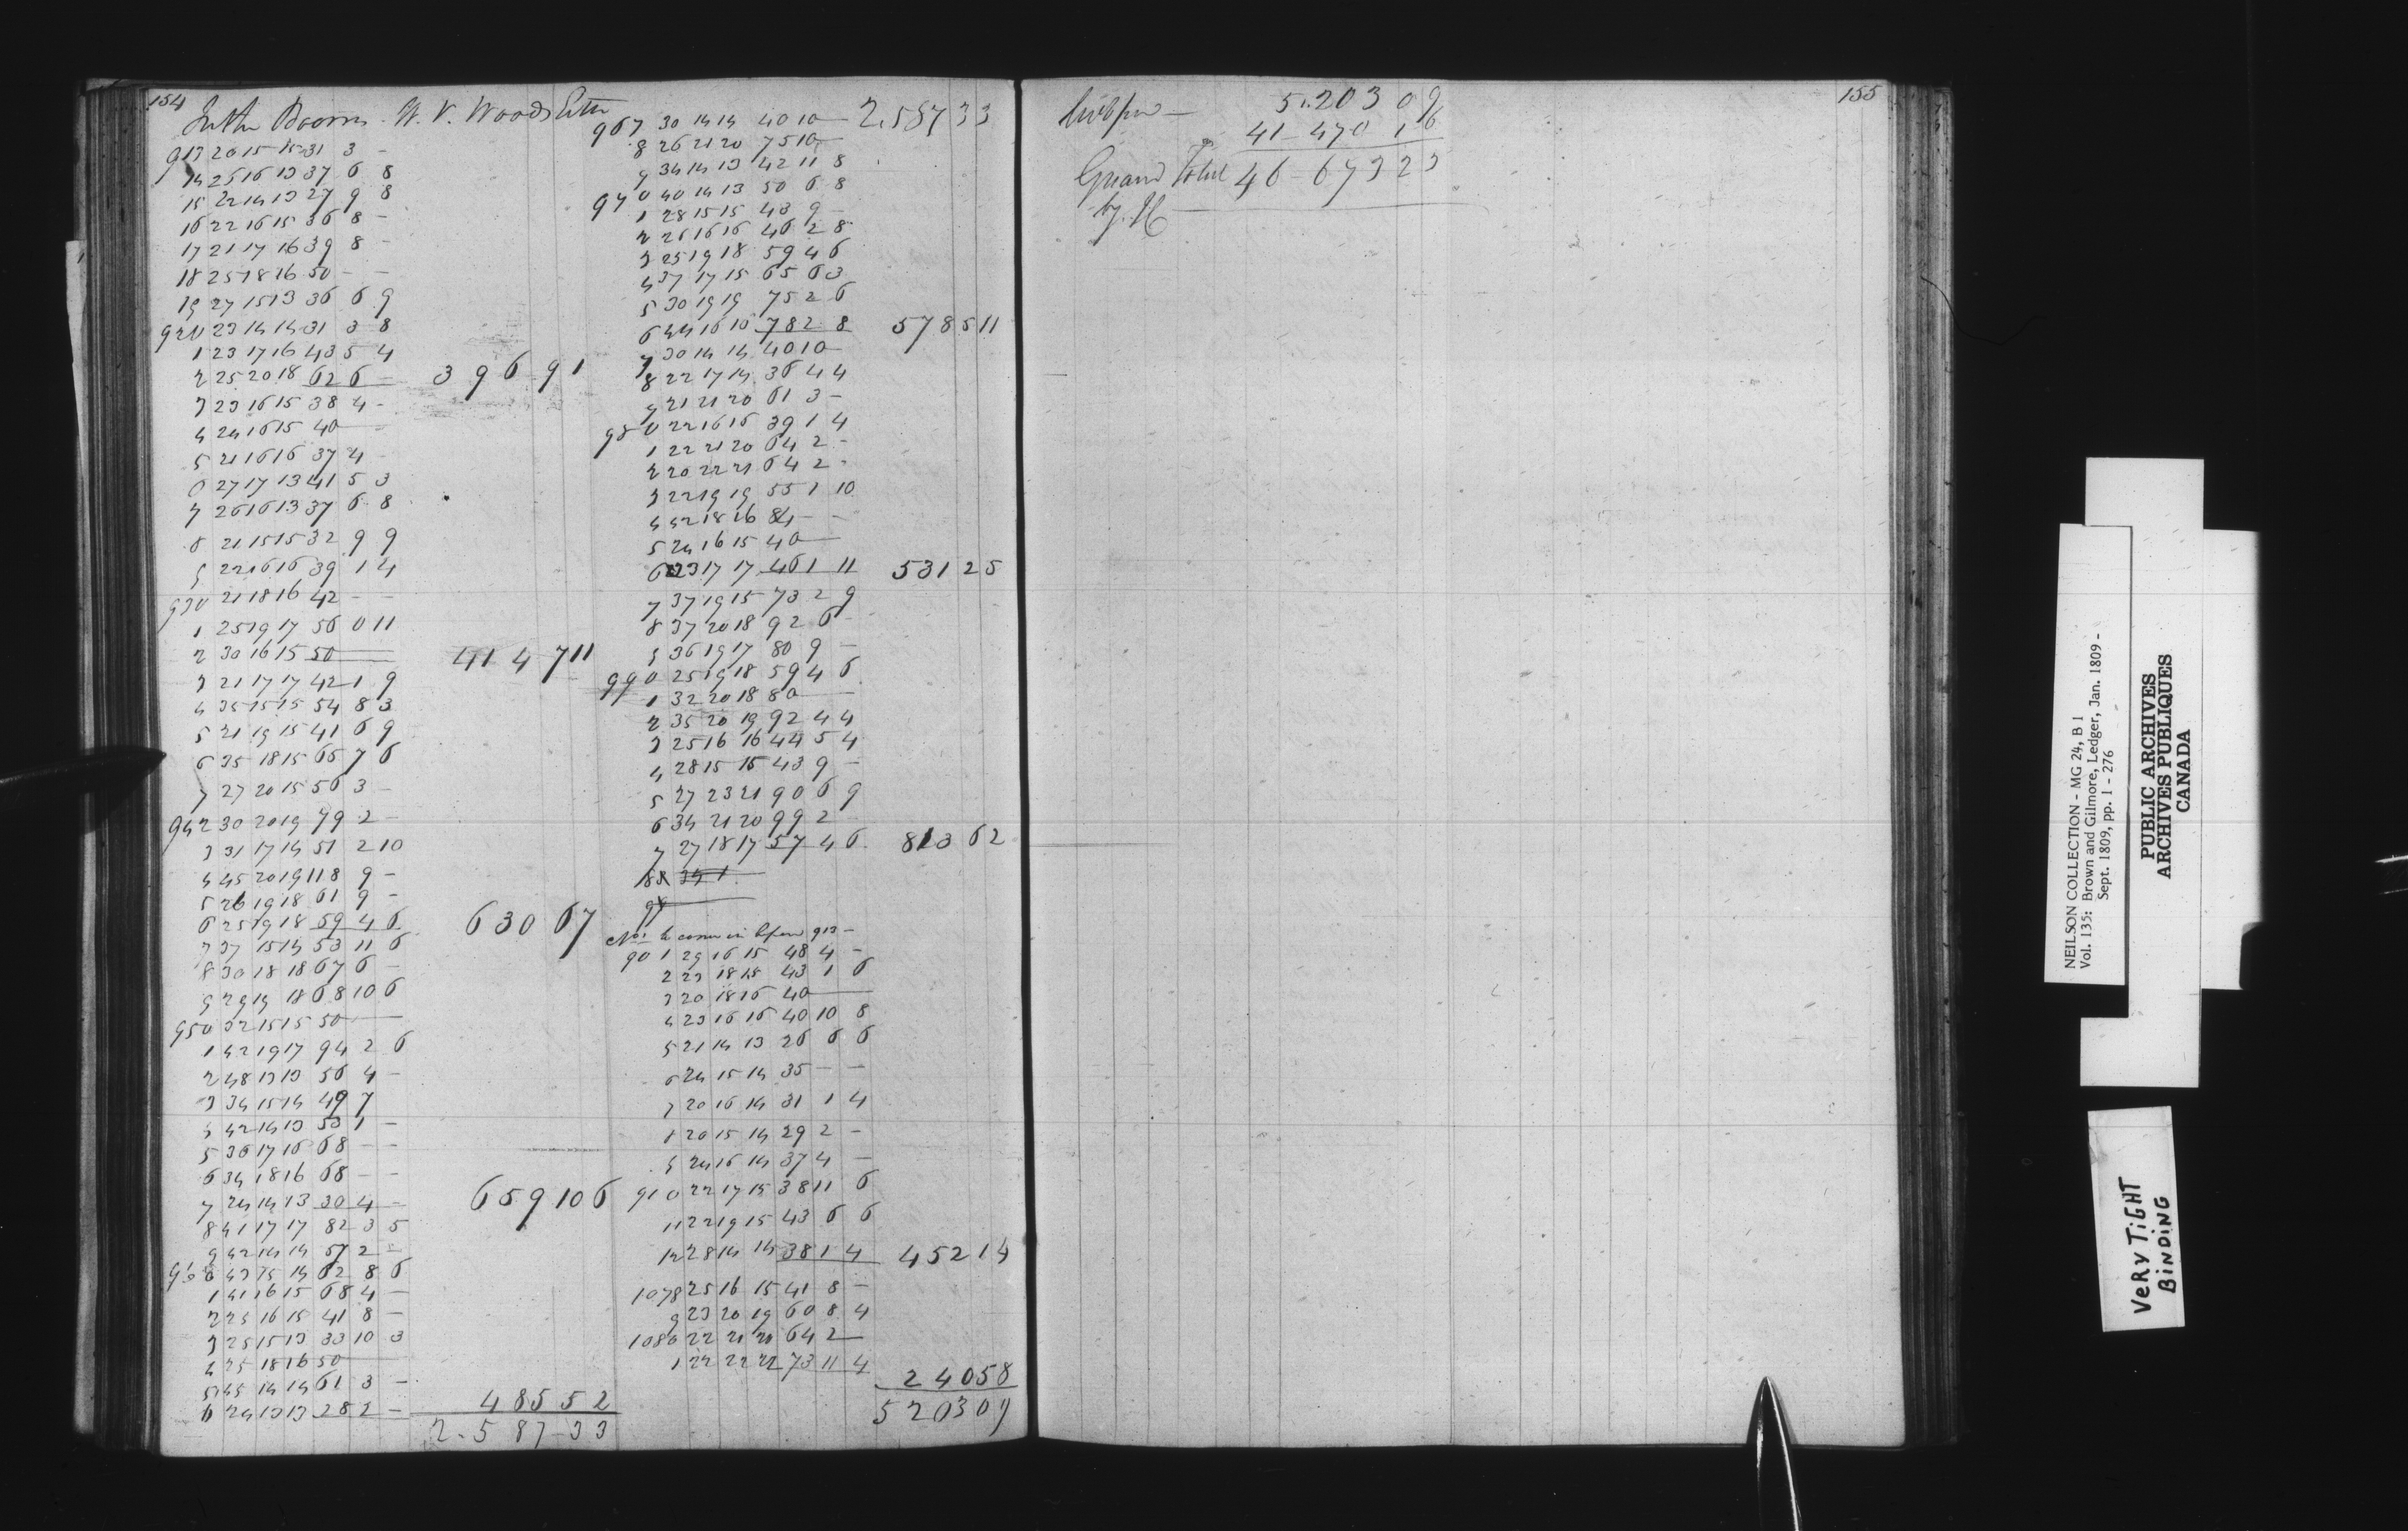 154
In the Booms W. V. Woods
913 20 15 15 31 3 -
14 25 16 13 37 6 8
15 22 14 13 27 9 8
16 22 16 15 36 8 -
17 21 17 16 39 8 -
18 25 18 16 50 - -
19 27 15 13 36 6 9
920 23 14 14 31 3 8
1 23 17 16 43 5 4
2 25 20 18 62 6 - 396 9 1
3 23 16 15 38 4 -
4 24 16 15 40
5 21 16 16 37 4 -
6 27 17 13 41 5 3
7 26 16 13 37 6 8
8 21 15 15 32 9 9
9 22 16 16 39 1 4
930 21 18 16 42 - -
1 25 19 17 56 0 11
2 30 16 15 50 414 7 11
3 21 17 17 42 1 9
4 35 15 15 54 8 3
5 21 19 15 41 6 9
6 35 18 15 65 7 6
7 27 20 15 56 3 -
942 30 20 19 79 2 -
3 31 17 14 51 2 10
4 45 20 19 118 9 -
5 26 19 18 61 9 -
6 25 19 18 59 4 6 630 6 7
7 37 15 14 53 11 6
8 30 18 18 67 6 -
9 29 19 18 68 10 6
950 32 15 15 50
1 42 19 17 94 2 6
2 48 13 13 56 4 -
3 34 15 14 49 7
4 42 14 13 53 1 -
5 36 17 16 68 - -
6 34 18 16 68 - -
7 24 14 13 30 4 - 659 10 6
8 41 17 17 82 3 5
9 42 14 14 57 2 -
960 43 15 14 62 8 6
1 41 16 15 68 4 -
2 25 16 15 41 8 -
3 25 15 13 33 10 3
4 25 18 16 50
5 45 14 14 61 3 -
6 24 13 13 28 2 - 485 5 2
2.587 - 3 3
967 30 14 14 40 10 2.587 3 3
8 26 21 20 75 10
9 34 14 13 42 11 8
970 40 14 13 50 6 8
1 28 15 15 43 9 -
2 26 16 16 46 2 8
3 25 19 18 59 4 6
4 37 17 15 65 6 3
5 30 19 19 75 2 6
6 44 16 16 78 2 8 578 5 11
7 30 14 14 40 10
8 22 17 14 36 4 4
9 21 21 20 61 3 -
980 22 16 16 39 1 4
1 22 21 20 64 2 -
2 20 22 21 64 2 -
3 22 19 19 55 1 10
4 42 18 16 84 - -
5 24 16 15 40
6 23 17 17 46 1 11 531 2 5
7 37 19 15 73 2 9
8 37 20 18 92 6 -
9 36 19 17 80 9 -
990 25 19 18 59 4 6
1 32 20 18 80
2 35 20 19 92 4 4
3 25 16 16 44 5 4
4 28 15 15 43 9 -
5 27 23 21 90 6 9
6 34 21 20 99 2
7 27 18 17 57 4 6 813 6 2
Nos to come in before 913 -
901 29 16 15 48 4 -
2 23 18 15 43 1 6
3 20 18 16 40
4 23 16 16 40 10 8
5 21 14 13 26 6 6
6 24 15 14 35 - -
7 20 16 14 31 1 4
8 20 15 14 29 2 -
9 24 16 14 37 4 -
910 22 17 15 38 11 6
11 22 19 15 43 6 6
12 28 14 14 38 1 4 452 1 4
1078 25 16 15 41 8 -
9 23 20 19 60 8 4
1080 22 21 20 64 2
1 22 22 22 73 11 4
240 5 8
5203 0 9
155
5.203 0 9
41 - 470 1 6
Grand Total 46 - 673 2 3
NEILSON COLLECTION - MG 24, B 1
Vol. 135: Brown and Gilmore, Ledger, Jan. 1809 -
Sept. 1809, pp. 1 - 276
PUBLIC ARCHIVES
ARCHIVES PUBLIQUES
CANADA
VERY TIGHT
BINDING